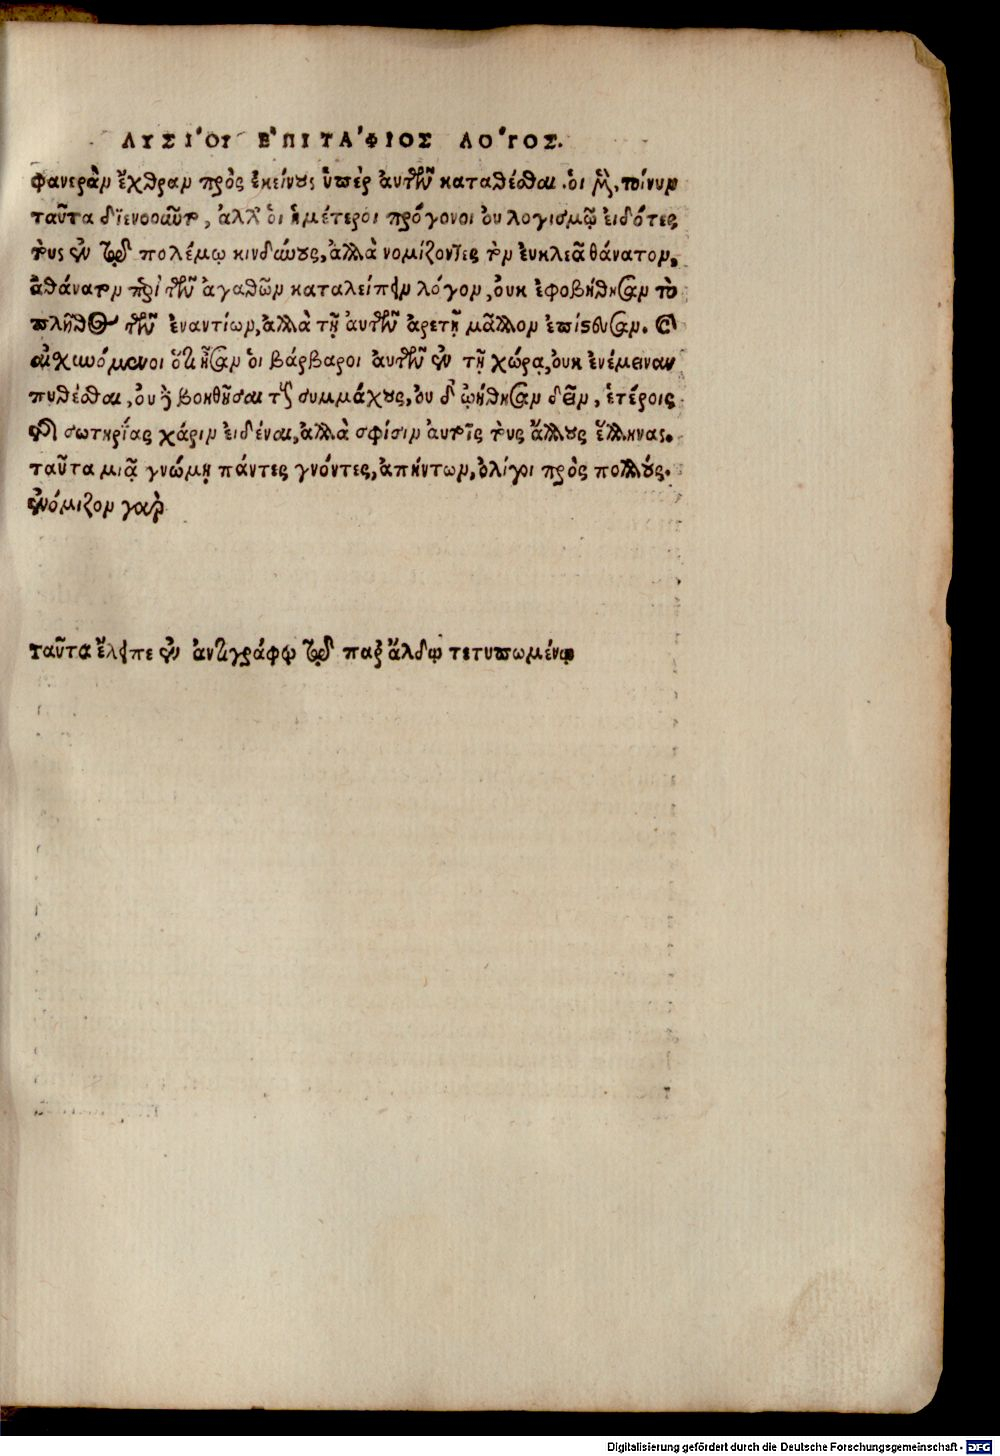 ΛΥΣΙ'ΟΥ Ε'ΠΙΤΑ'ΦΙΟΣ ΛΟ'ΓΟΣ.
φανερὰν ἔχθραν πρὸς ἐκείνους ὑπὲρ ἀυτῶν καταθέσθαι. ὁι μὲν, τοίνυν
ταῦτα διενοοῦντο, ἀλλ' ὁι ἡμέτεροι πρόγονοι ὀυ λογισμῷ ἐιδότες
τοὺς ἐν τῷ πολέμῳ κινδύνους, ἀλλὰ νομίζοντες τὸν ἐυκλεᾶ θάνατον,
ἀθάνατον περὶ τῶν ἀγαθῶν καταλείπειν λόγον, ὀυκ ἐφοβήθησαν τὸ
πλῆθος τῶν ἐναντίων, ἀλλὰ τῇ ἀυτῶν ἀρετῇ μᾶλλον ἐπίστευσαν. καὶ
αἰσχυνόμενοι ὅτι ἦσαν ὁι βάρβαροι ἀυτῶν ἐν τῇ χώρᾳ, ὀυκ ἐνέμειναν
πυθέσθαι, ὀυδὲ βοηθῆσαι τοὺς συμμάχους, ὀυδ' ᾠήθησαν δεῖν, ἑτέροις
τῆς σωτηρίας χάριν ἐιδέναι, ἀλλὰ σφίσιν ἀυτοῖς τοὺς ἄλλους ἕλληνας.
ταῦτα μιᾷ γνώμῃ πάντες γνόντες, ἀπήντων, ὀλίγοι πρὸς πολλούς.
ἐνόμιζον γὰρ
ταῦτα ἔλειπε ἐν ἀντιγράφῳ τῷ παρ' ἄλδῳ τετυπωμένῳ
Digitalisierung gefördert durch die Deutsche Forschungsgemeinschaft - DFG